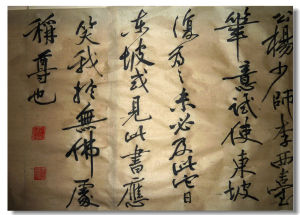 公楊少師李西臺
筆意試使東坡
復為之未必及此它日
東坡或見此書應
笑我於無佛處
稱尊也